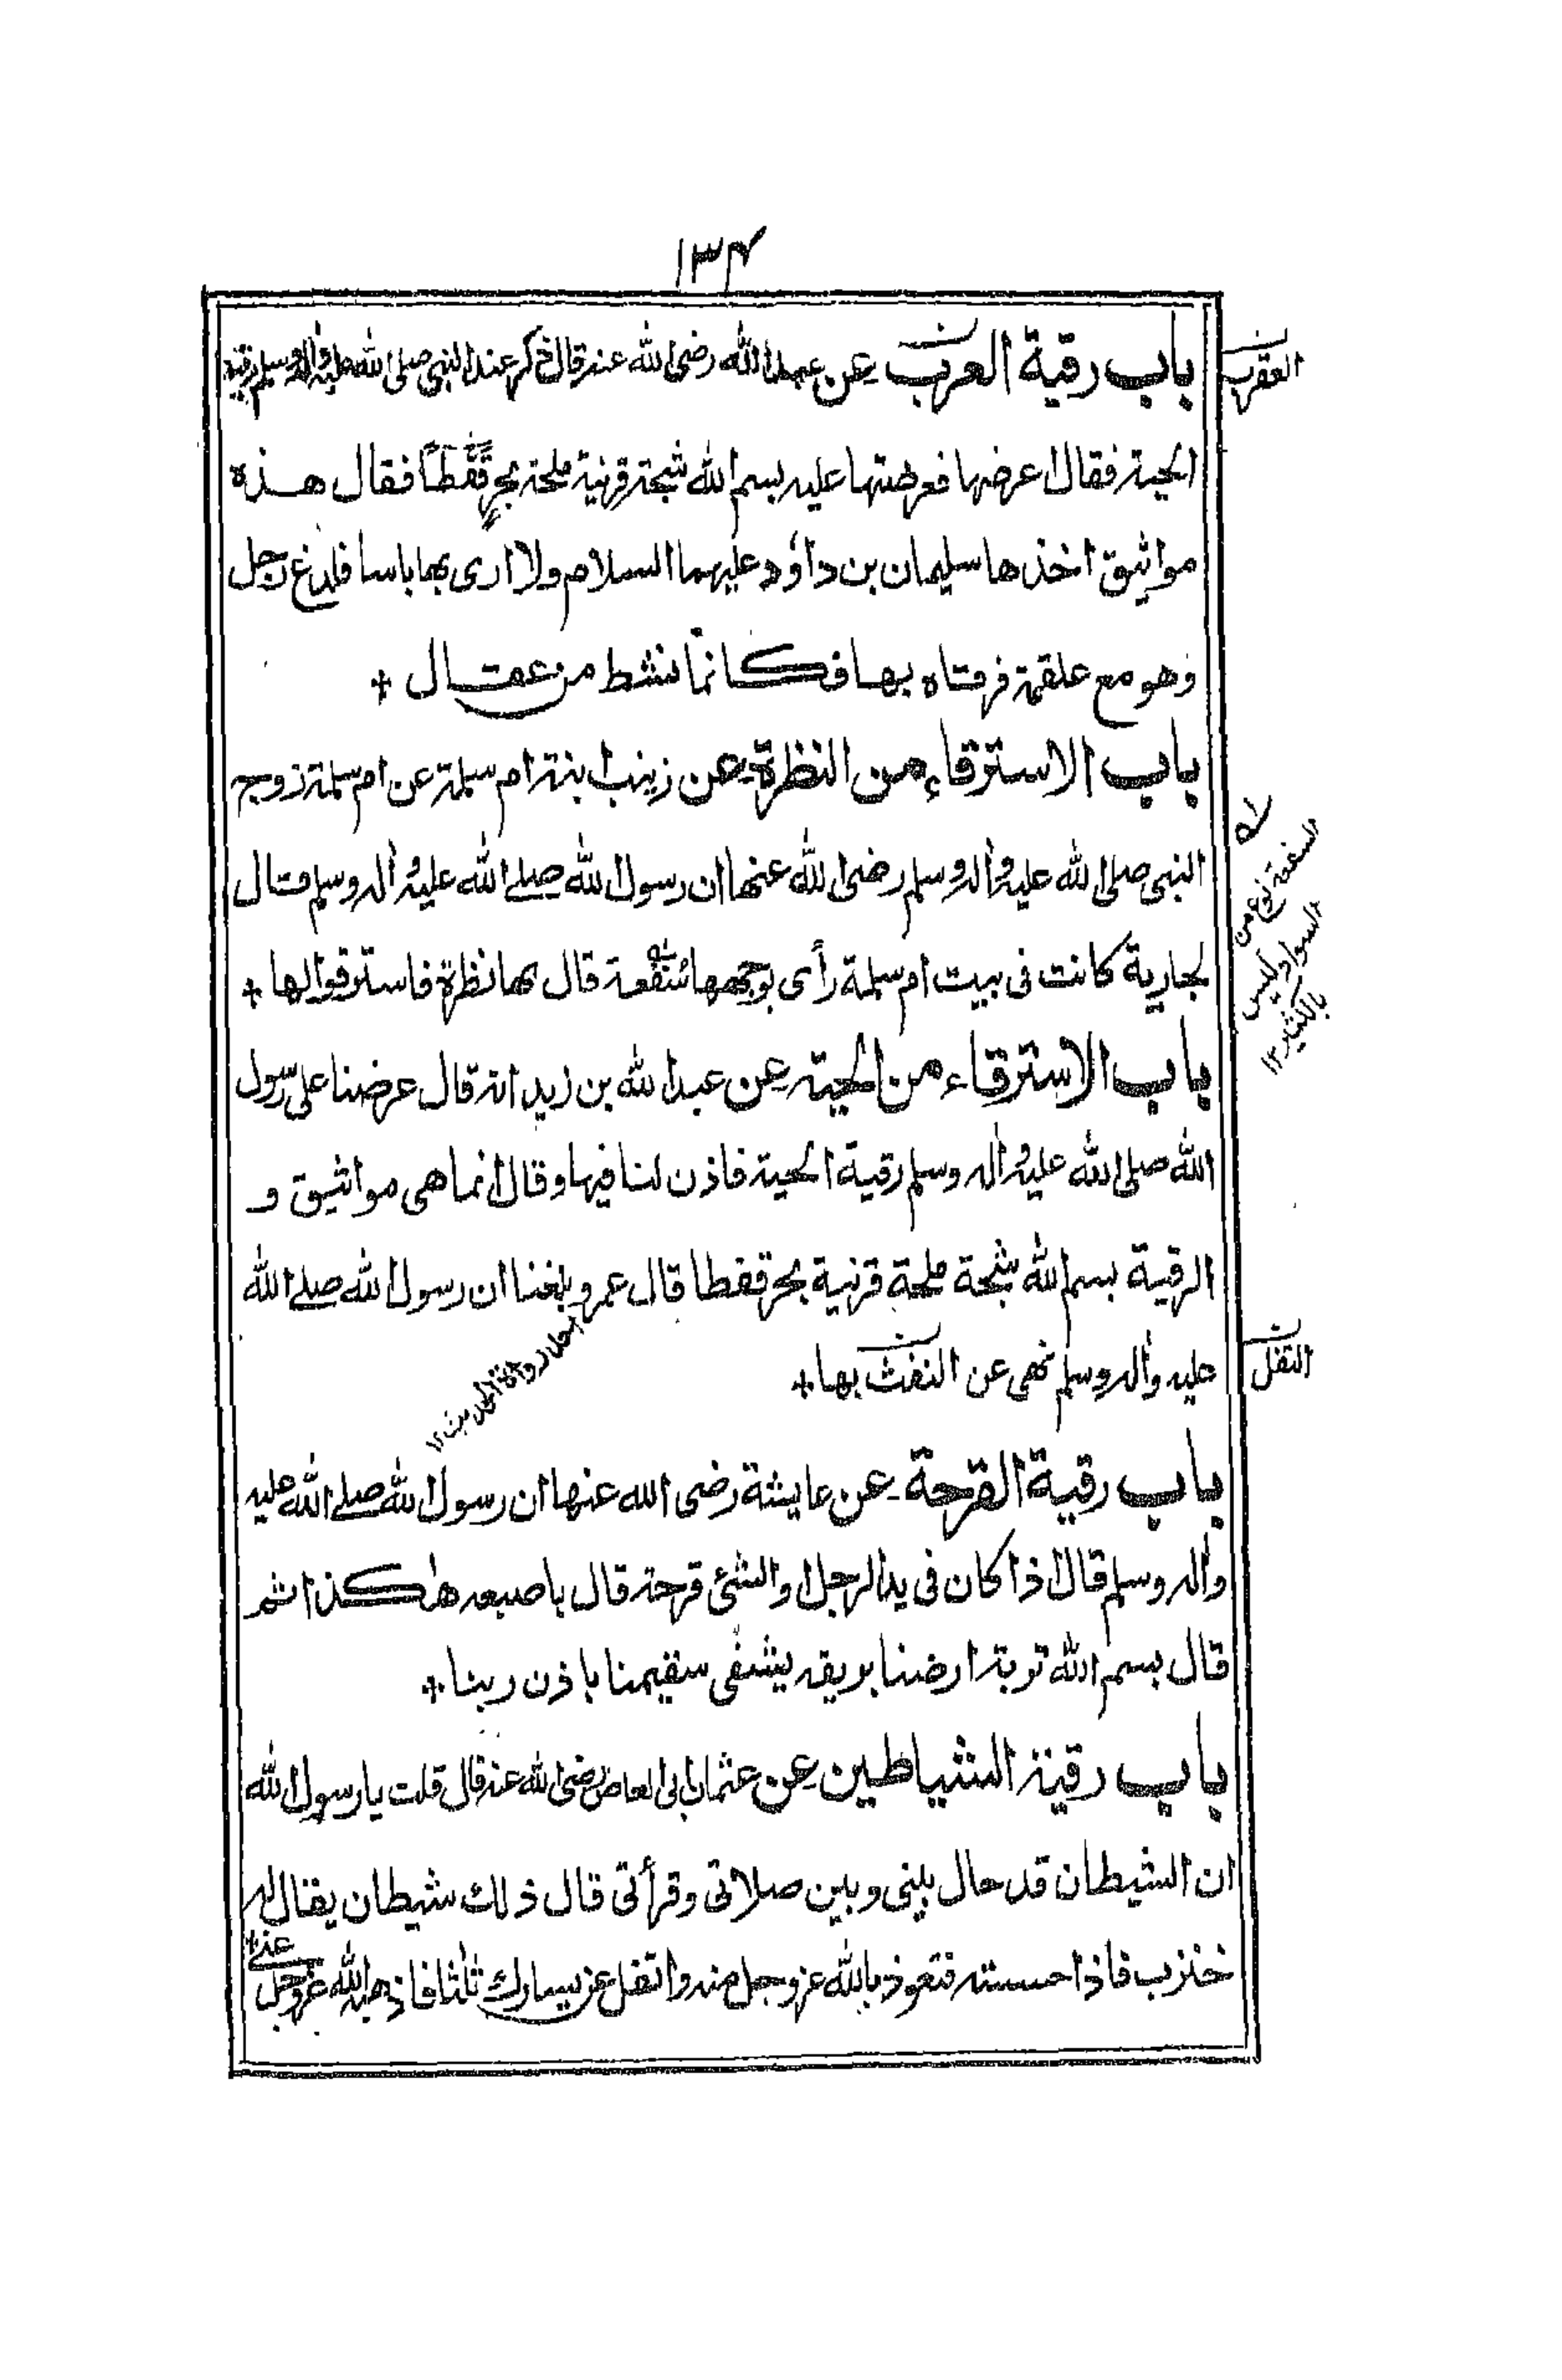 ١٣٤
باب رقية العرب عن عبدالله رضى الله عنه قال ذكر عند النبى صلى الله عليه واله وسلم رقية
العقرب
الحية فقال اعرضها فعرضتها عليه بسم الله شجة قرنية ملحة بحر قفطا فقال هذه
مواثيق اخذها سليمان بن داؤد عليهما السلام ولا ارى بها باسا فلدغ رجل
وهو مع علقمة فرقاه بها فكانما نشط من عقال +
باب الاسترقاء من النظرة عن زينب ابنة ام سلمة عن ام سلمة زوج
النبى صلى الله عليه واله وسلم رضى الله عنها ان رسول الله صلى الله عليه واله وسلم قال
لجارية كانت فى بيت ام سلمة رأى بوجهها سفعة قال بها نظرة فاسترقوا لها +
السفعة نوع من
السواد وليس
بالكثير ١٢
باب الاسترقاء من الحية عن عبدالله بن زيد انه قال عرضنا على رسول
الله صلى الله عليه واله وسلم رقية الحية فاذن لنا فيها وقال انما هى مواثيق و
الرقية بسم الله شجة ملحة قرنية بحر قفطا قال عمرو بلغنا ان رسول الله صلى الله
احد رواة الحديث ١٢
عليه واله وسلم نهى عن النفث بها +
التفل
باب رقية القرحة عن عايشة رضى الله عنها ان رسول الله صلى الله عليه
واله وسلم قال اذا كان فى يد الرجل او الشئ قرحة قال باصبعه هكذا ثم
قال بسم الله تربة ارضنا بريقه يشفى سقيمنا باذن ربنا +
باب رقية الشياطين عن عثمان بن ابى العاص رضى الله عنه قال قلت يا رسول الله
ان الشيطان قد حال بينى وبين صلاتى وقرأتى قال ذلك شيطان يقال له
خنزب فاذا احسسته فتعوذ بالله عز وجل منه واتفل عن يسارك ثلثا فاذهبه الله عز وجل عنى +